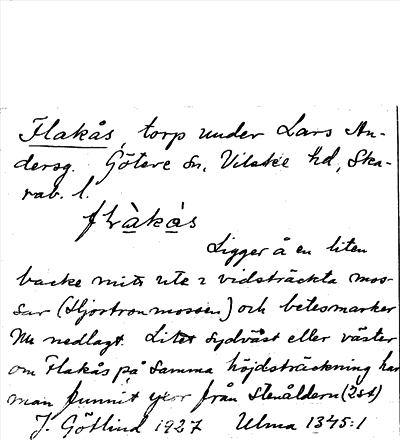 Flakås, torp under Lars An-
dersg. Götene sn, Vilske hd, Ska-
rab. l.
flàkàs
Ligger å en liten
backe mitt ute i vidsträckta mos-
sar (Hjortronmossen) och betesmarker
Nu nedlagt. Litet sydväst eller väster
om Flakås på samma höjdsträckning har
man funnit yxor från stenåldern (2st)
J. Götlind 1927 Ulma 1345:1